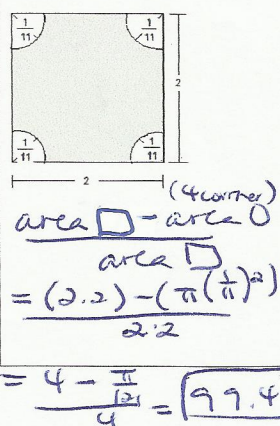 1/11 1/11
2
1/11 1/11
2
(4 corner)
area □ - area O
area □
= (2.2) - (π(1/11)²)
2.2
= 4 - π/121
4
= 99.4